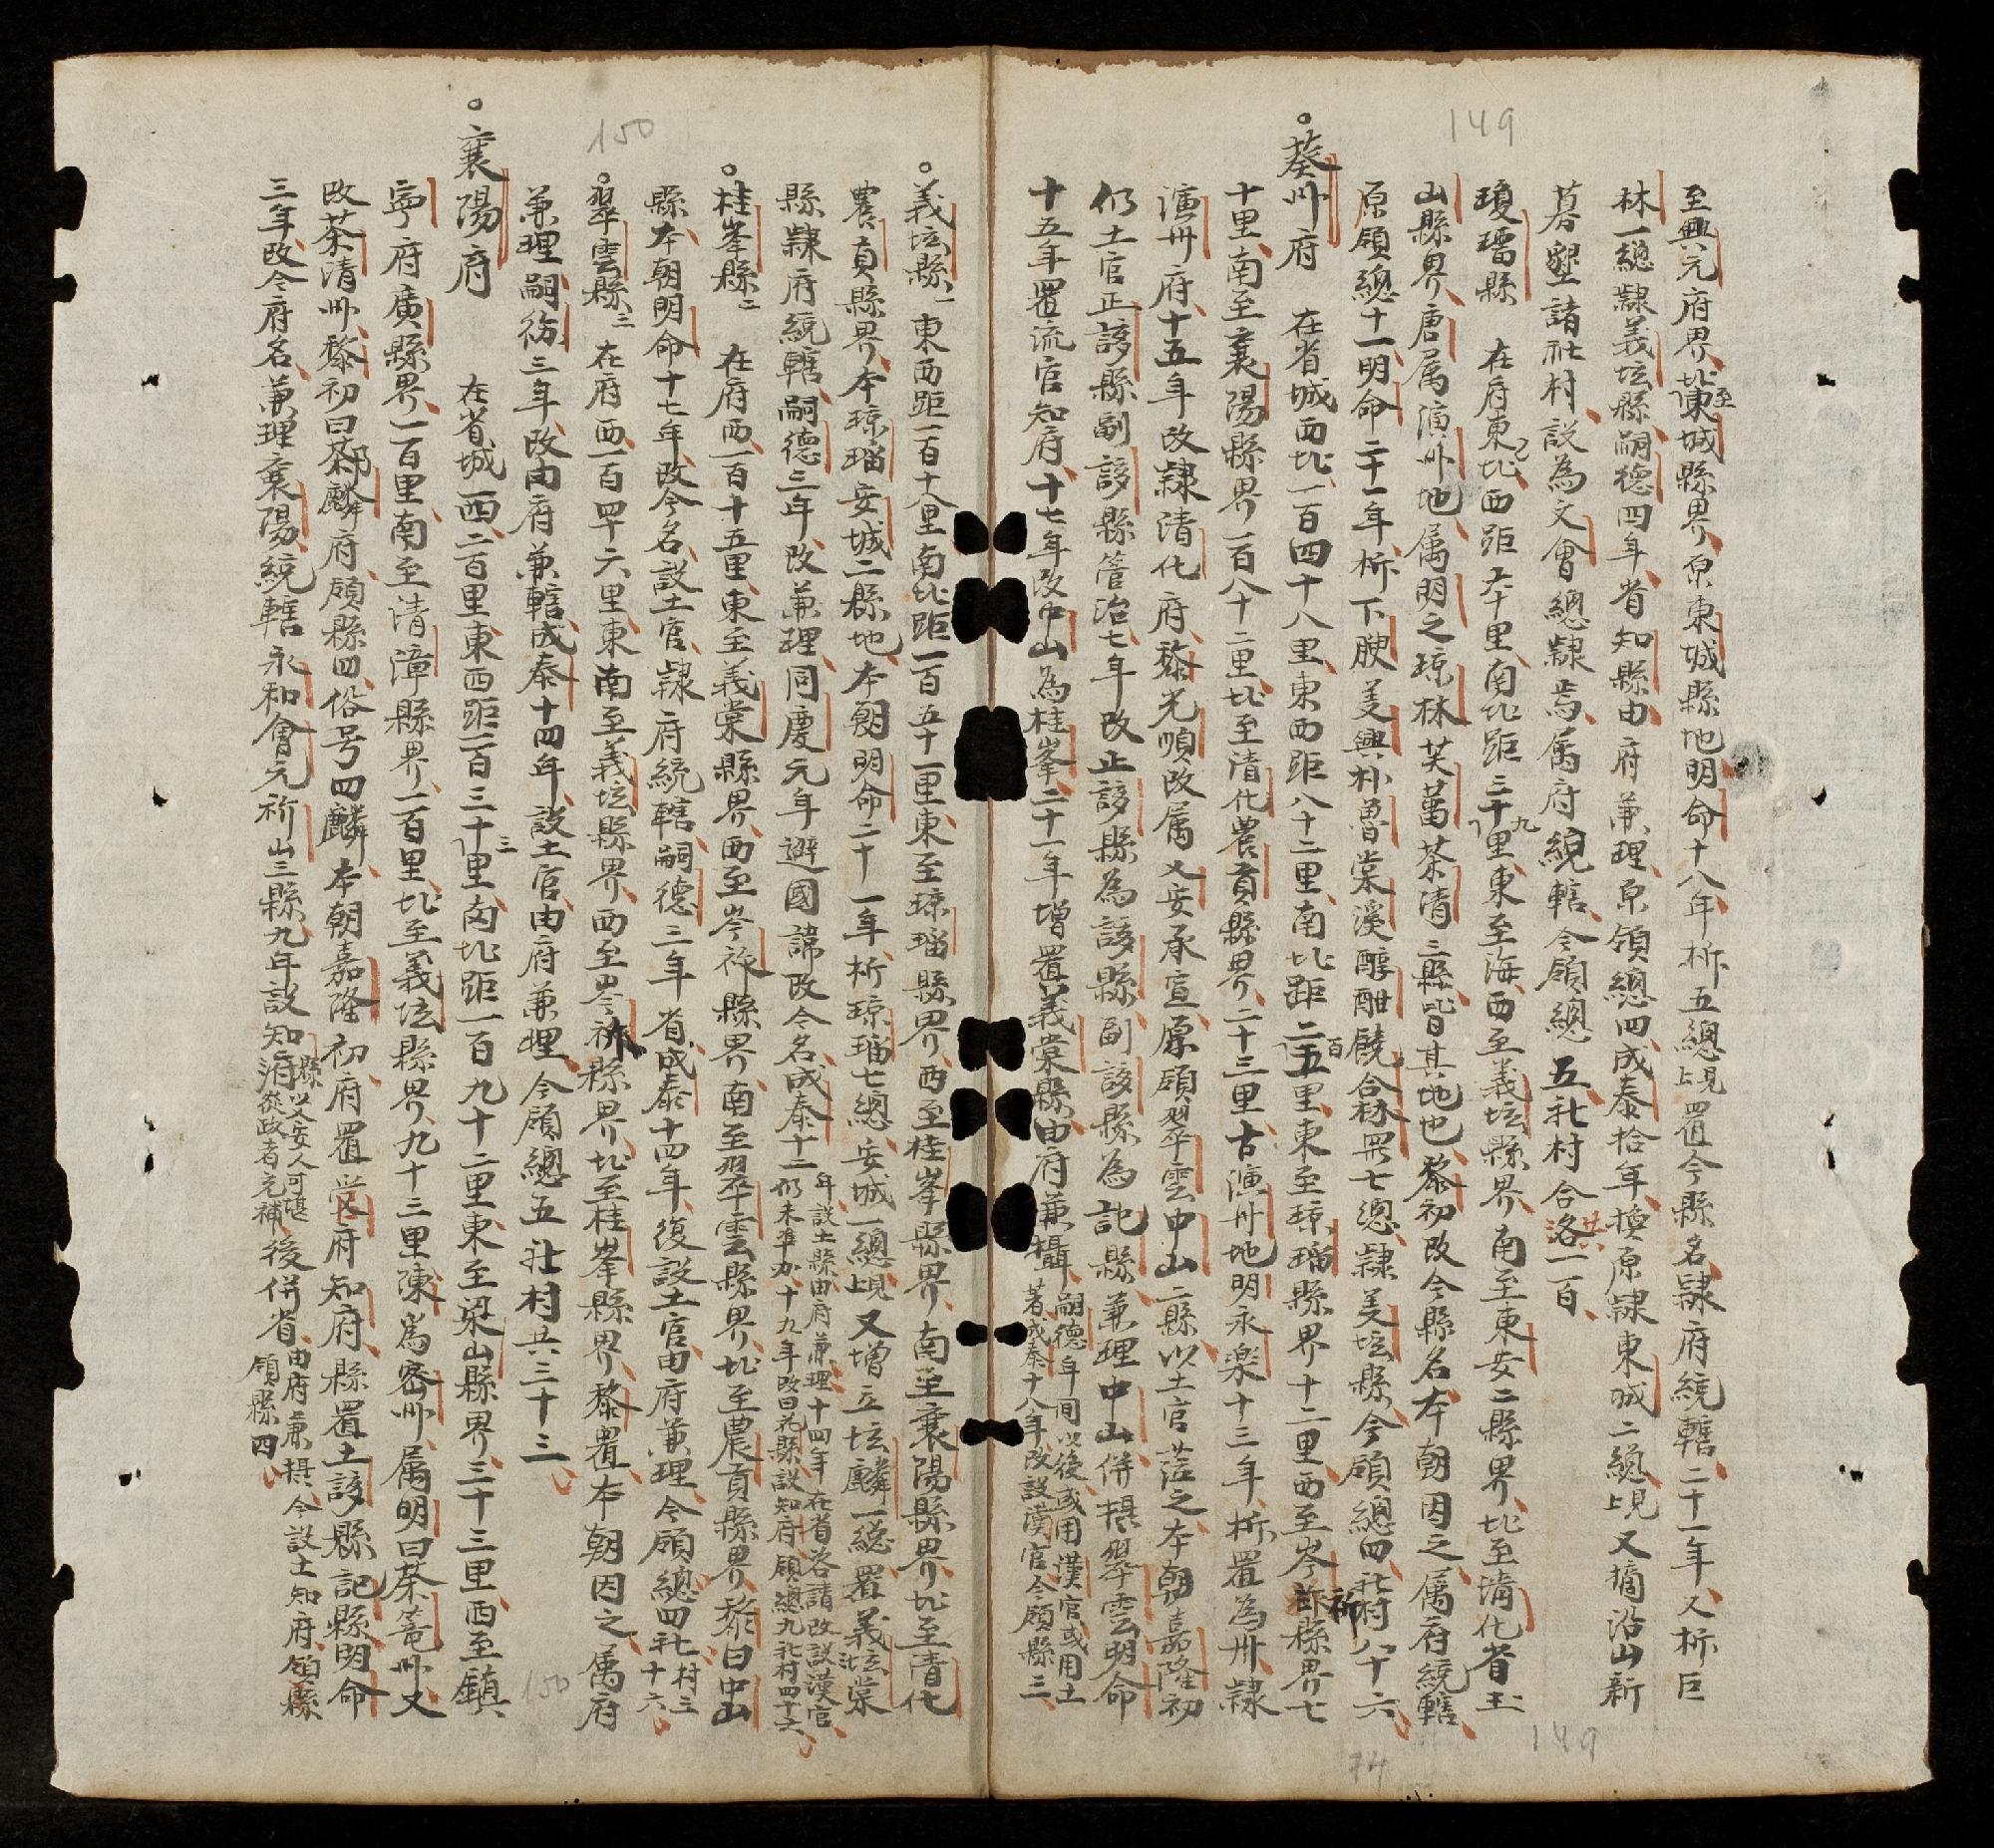 149
至興元府界北至東城縣界原東城縣地明命十八年析五總見上置今縣名隸府統轄二十一年又析巨
林一總隸義坛縣嗣德四年省知縣由府兼理原領總四成泰拾年換原隸東城二總見上又摘沿山新
暮墾諸社村設為文會總隸焉属府統轄今領總五社村合洛共一百
瓊瑠縣 在府東北西距五十里南北距三十九里東至海西至義坛縣界南至東安二縣界北至清化省玉
山縣界唐属演州地属明之瓊林芙蒥茶清三縣皆其地也黎初改今縣名本朝因之属府統轄
原領總十一明命二十一年析下腴美興朴魯棠溪醇酣饒合林罘七總隸義坛縣今領總四社村八十六
葵州府 在省城西北一百四十八里東西距八十二里南北距二百五里東至琼瑠縣界十二里西至岑祈縣界七
十里南至襄陽縣界一百八十二里北至清化農貢縣界二十三里古演州地明永楽十三年析置為州隸
演州府十五年改隸清化府黎光順改属乂安承宣原領翠雲中山二縣以土官莅之本朝嘉隆初
仍土官正該縣副該縣管治七年改正該縣為該縣副該縣為記縣兼理中山併摂翠雲明命
十五年置流官知府十七年改中山為桂峯二十一年增置義棠縣由府兼攝嗣德年间以後或用漢官或用土
著成泰十八年改設漢官今領縣三
149
74
150
義坛縣一 東西距一百十八里南北距一百五十一里東至琼瑠縣界西至桂峯縣界南至襄陽縣界北至清化
農貢縣界本琼瑠安城二縣地本朝明命二十一年析琼瑠七總安城一總見上又增立坛麟一總置義坛棠
縣隸府統轄嗣德三年改兼理同慶元年避國諱改今名成泰十二年設土縣由府兼理十四年在省咨請改設漢官
仍未準办十九年改曰禮縣設知府領總九社村四十六
桂峯縣二 在府西一百十五里東至義棠縣界西至岑祈縣界南至翠雲縣界北至農貢縣界黎曰中山
縣本朝明命十七年改今名設土官隸府統轄嗣德三年省成泰十四年復設土官由府兼理今領總四社村三
十六
翠雲縣三 在府西一百四十六里東南至義坛縣界西至岑祚縣界北至桂峯縣界黎置本朝因之属府
兼理嗣德三年改由府兼轄成泰十四年設土官由府兼理今領總五社村共三十三
襄陽府 在省城西二百里東西距二百三十三里南北距一百九十二里東至梁山縣界三十三里西至鎮
寧府廣縣界一百里南至清漳縣界一百里北至義坛縣界九十三里陳為密州属明曰茶篭州又
改茶清州黎初曰茶麟府領縣四俗号四麟本朝嘉隆初府置営府知府縣置土該縣記縣明命
三年改今府名兼理襄陽統轄永和會元祈山三縣九年設知府縣以乂安人可堪從政者充補後併省由府兼摂今設土知府領縣
領縣四
150